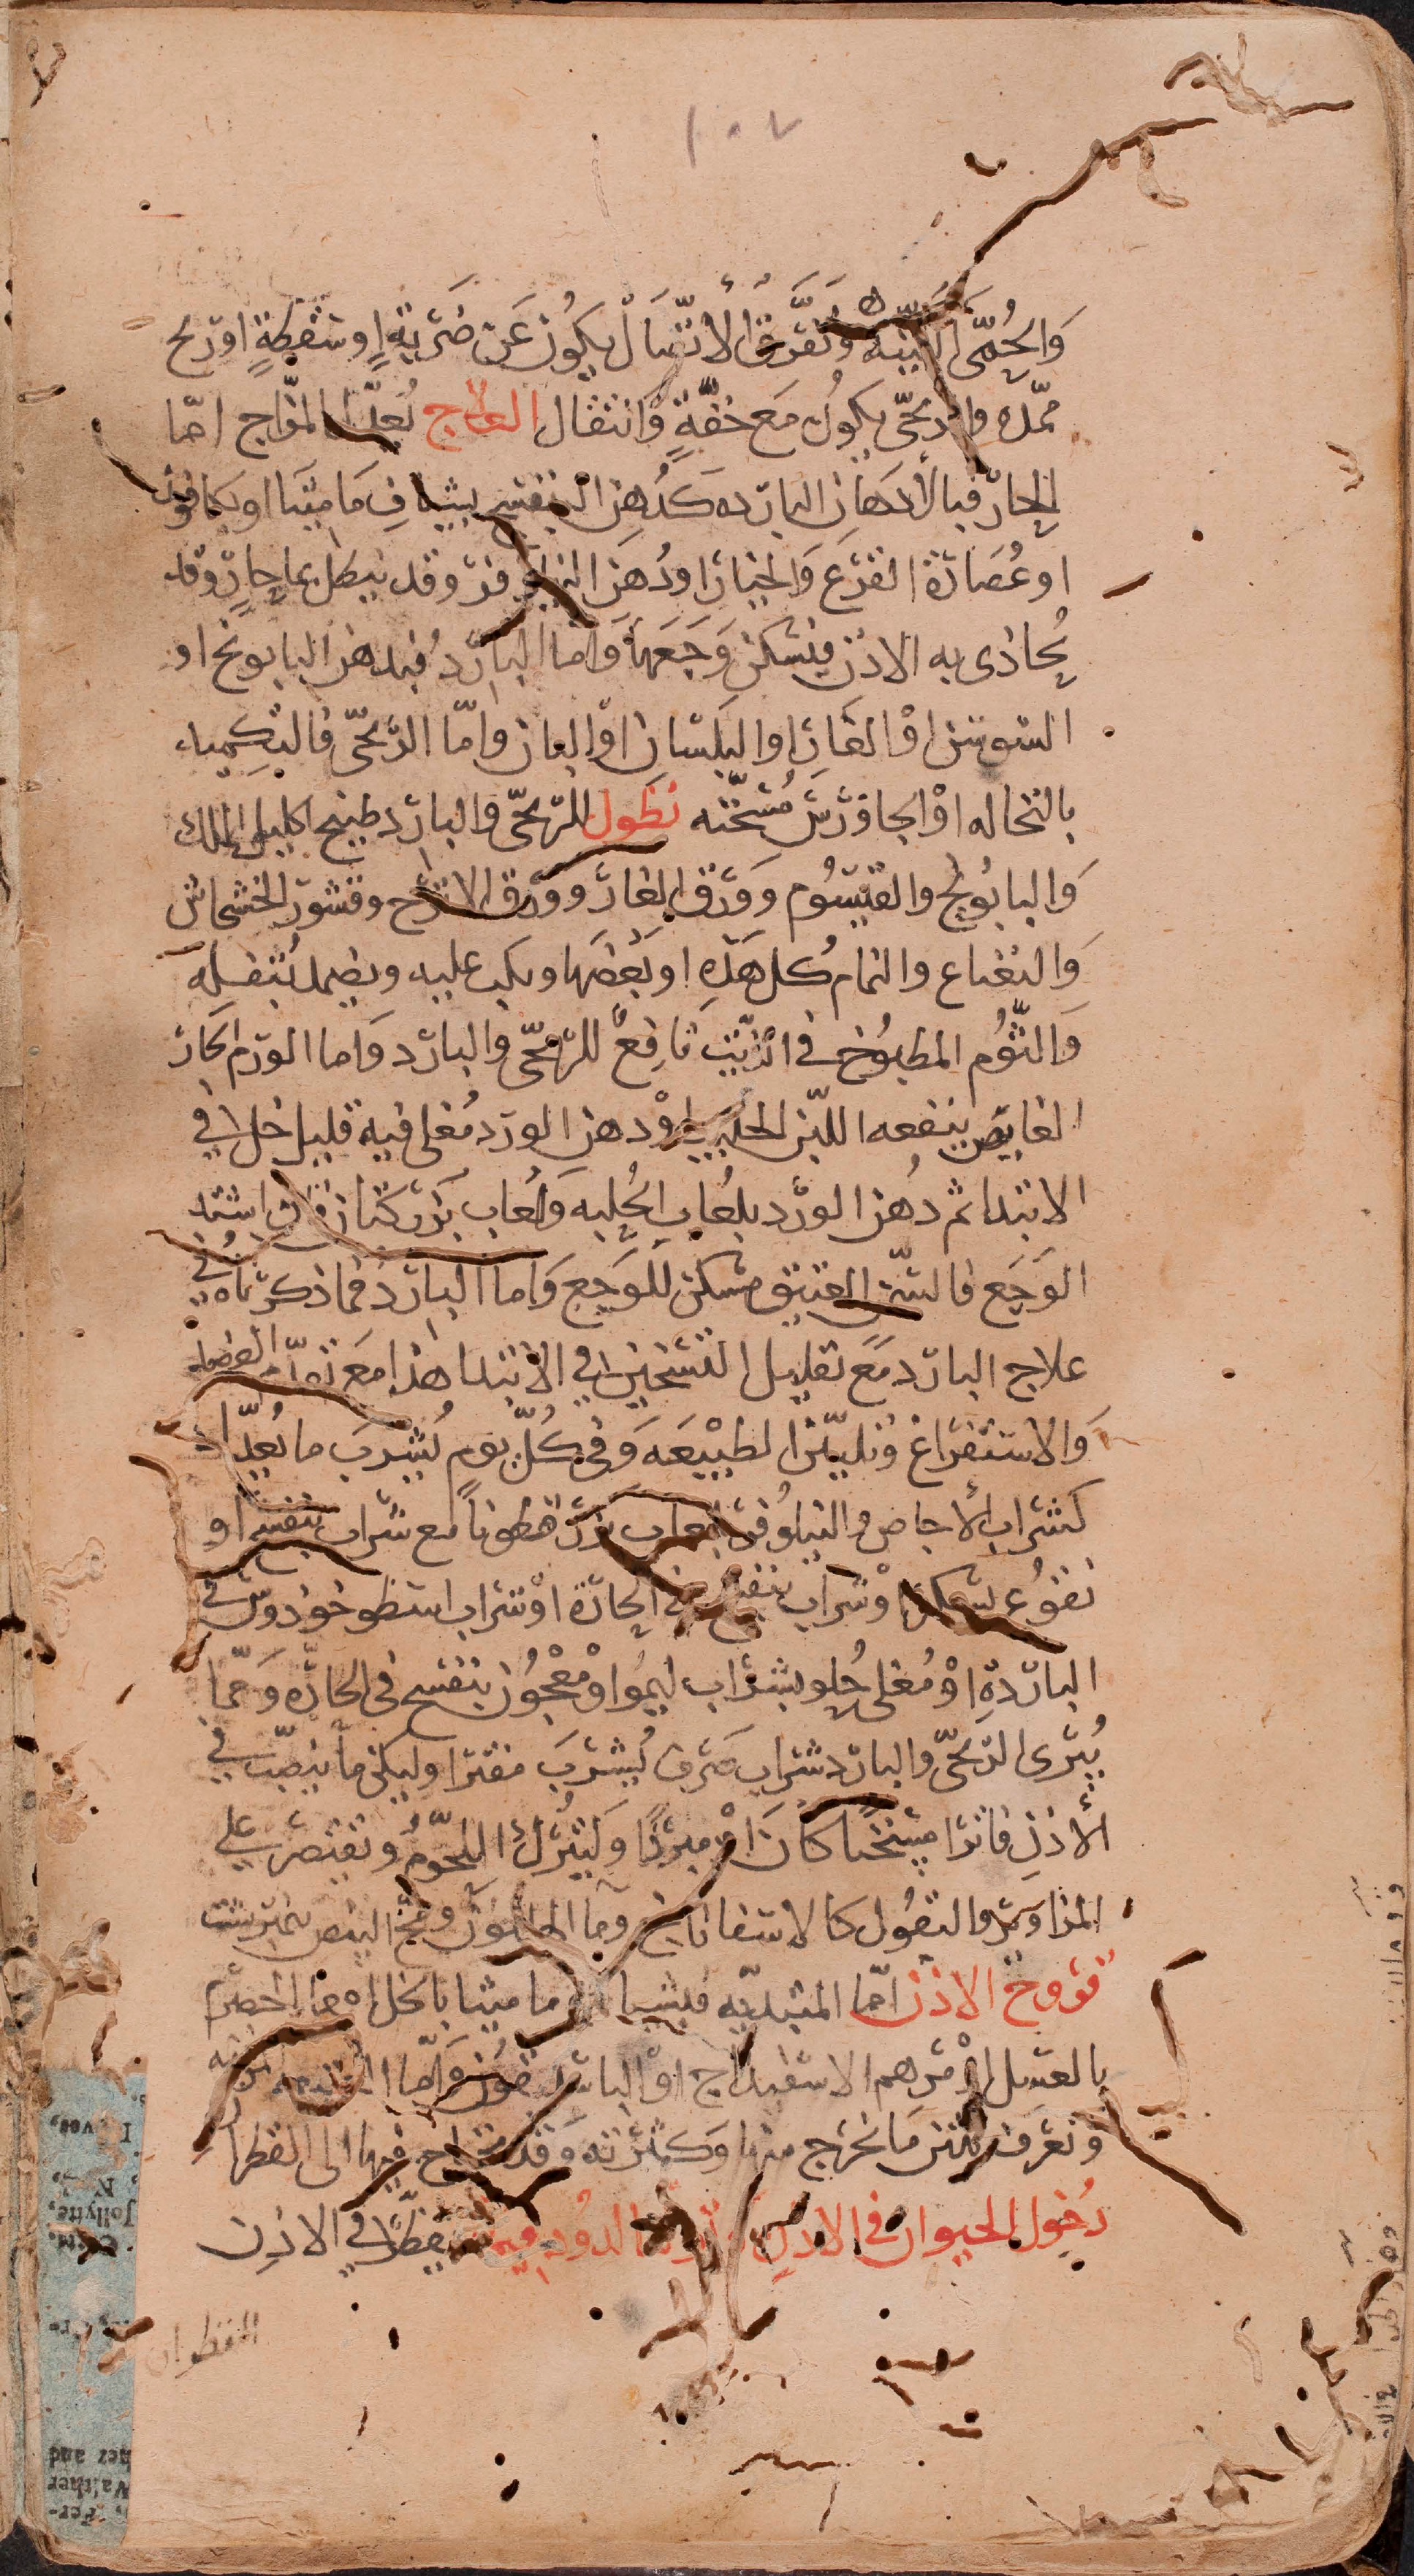 ١٠٧
وَالحُمَّى اللينه وَتَفَرُّقُ الأتّصَال يكُون عَن ضَربَةٍ او سَقطَةٍ اوريح
ممدده والريحى يكون مَع خفَّةٍ وَانتقال العلاج تُعدّل المزَاج امّا
الحارّ فبالأدهَان البارده كدُهن البنفسج بشيافِ مَاميثَا او بكافور
او عُصَارَة القرَع وَالخيَار اودُهن النيلوفر وقد ينطل بماحارّ وقد
يُحاذى به الاذن فيسكن وَجَعَها وَاما البارد فبدهن البابونج او
السّوسن اوْ الغَار او البَلسَان اوْ البان وامّا الرّيحىّ فالتكميد
بالنخاله اوْ الجاوَرس مُسَخّنه نطول للرّيحىّ والبارد طبيخ اكليل الملك
وَالبابُونج والقيسُوم وورَق الغار وورق الاترج وقشور الخشخاش
وَالنعناع والنمام كُل هَذِه او بَعْضهَا ويكب عليه ويضمد بثفله
وَالثّوُم المطبُوخ فى الزّيت نَافِعٌ للرّيحّى والبارد وَاما الورَم الحار
الغايص ينفعه اللبن الحليب اوْ دهن الورد مُغلى فيه قليل خل فى
الابتدا ثم دُهن الورد بلعُاب الحُلبه وَلُعاب بَزر كتان فان اشتد
الوَجَع فالسَّمن العتيق مسكن للوَجَع وَاما البارد فما ذكرناه فى
علاج البارد مَعَ تقليل التسَخين فى الابتدا هَذا مَعَ الفصد
وَالاستفرَاغ وَتليّين الطبيْعَه وَفى كُلّ يوم يُشرَبَ ما يُعدّل
كشَراب الأجاص و النيلُوفر بلعاب بزر قطونَا مع شَراب بنفسج او
نقوُع بسكر اوْ شرَاب بنفسج فى الحارّة اوْ شرَاب اسَطوخودوس فى
البارّدةِ اوْ مُغلى حُلو بشرَاب ليمُوا وْمعْجُون بنفسج فى الحارَّه وَممّا
يُبرى الرّيحىّ والبارد شرَاب صَرف يُشرَبَ مفترا وليكن مَا ينصَبّ فى
الأذنِ فاترًا مسَخنًا كان اوْ مبرّدًا وَليترُك اللّحوُم وَيقتصَر على
المزاوَير والبقُول كالاسفاناخ وما الهليون ومُخّ البيض نيمرشت
قرُوحَ الاذن امّا المبتديّه فبشياف ماميثا بالخل اوما الحصرم
بالعسَل اوْ مَرهم الاسَفيداج اوْ الباسَليقون وَامّا المزمنه
وَتعرَف بنتن مَا يخرَج منها وَكثرته وَقد يحتاج فيها الى القطران
دُخول الحيوان فى الاذن الدود يقطّر فى الاذن
القطران